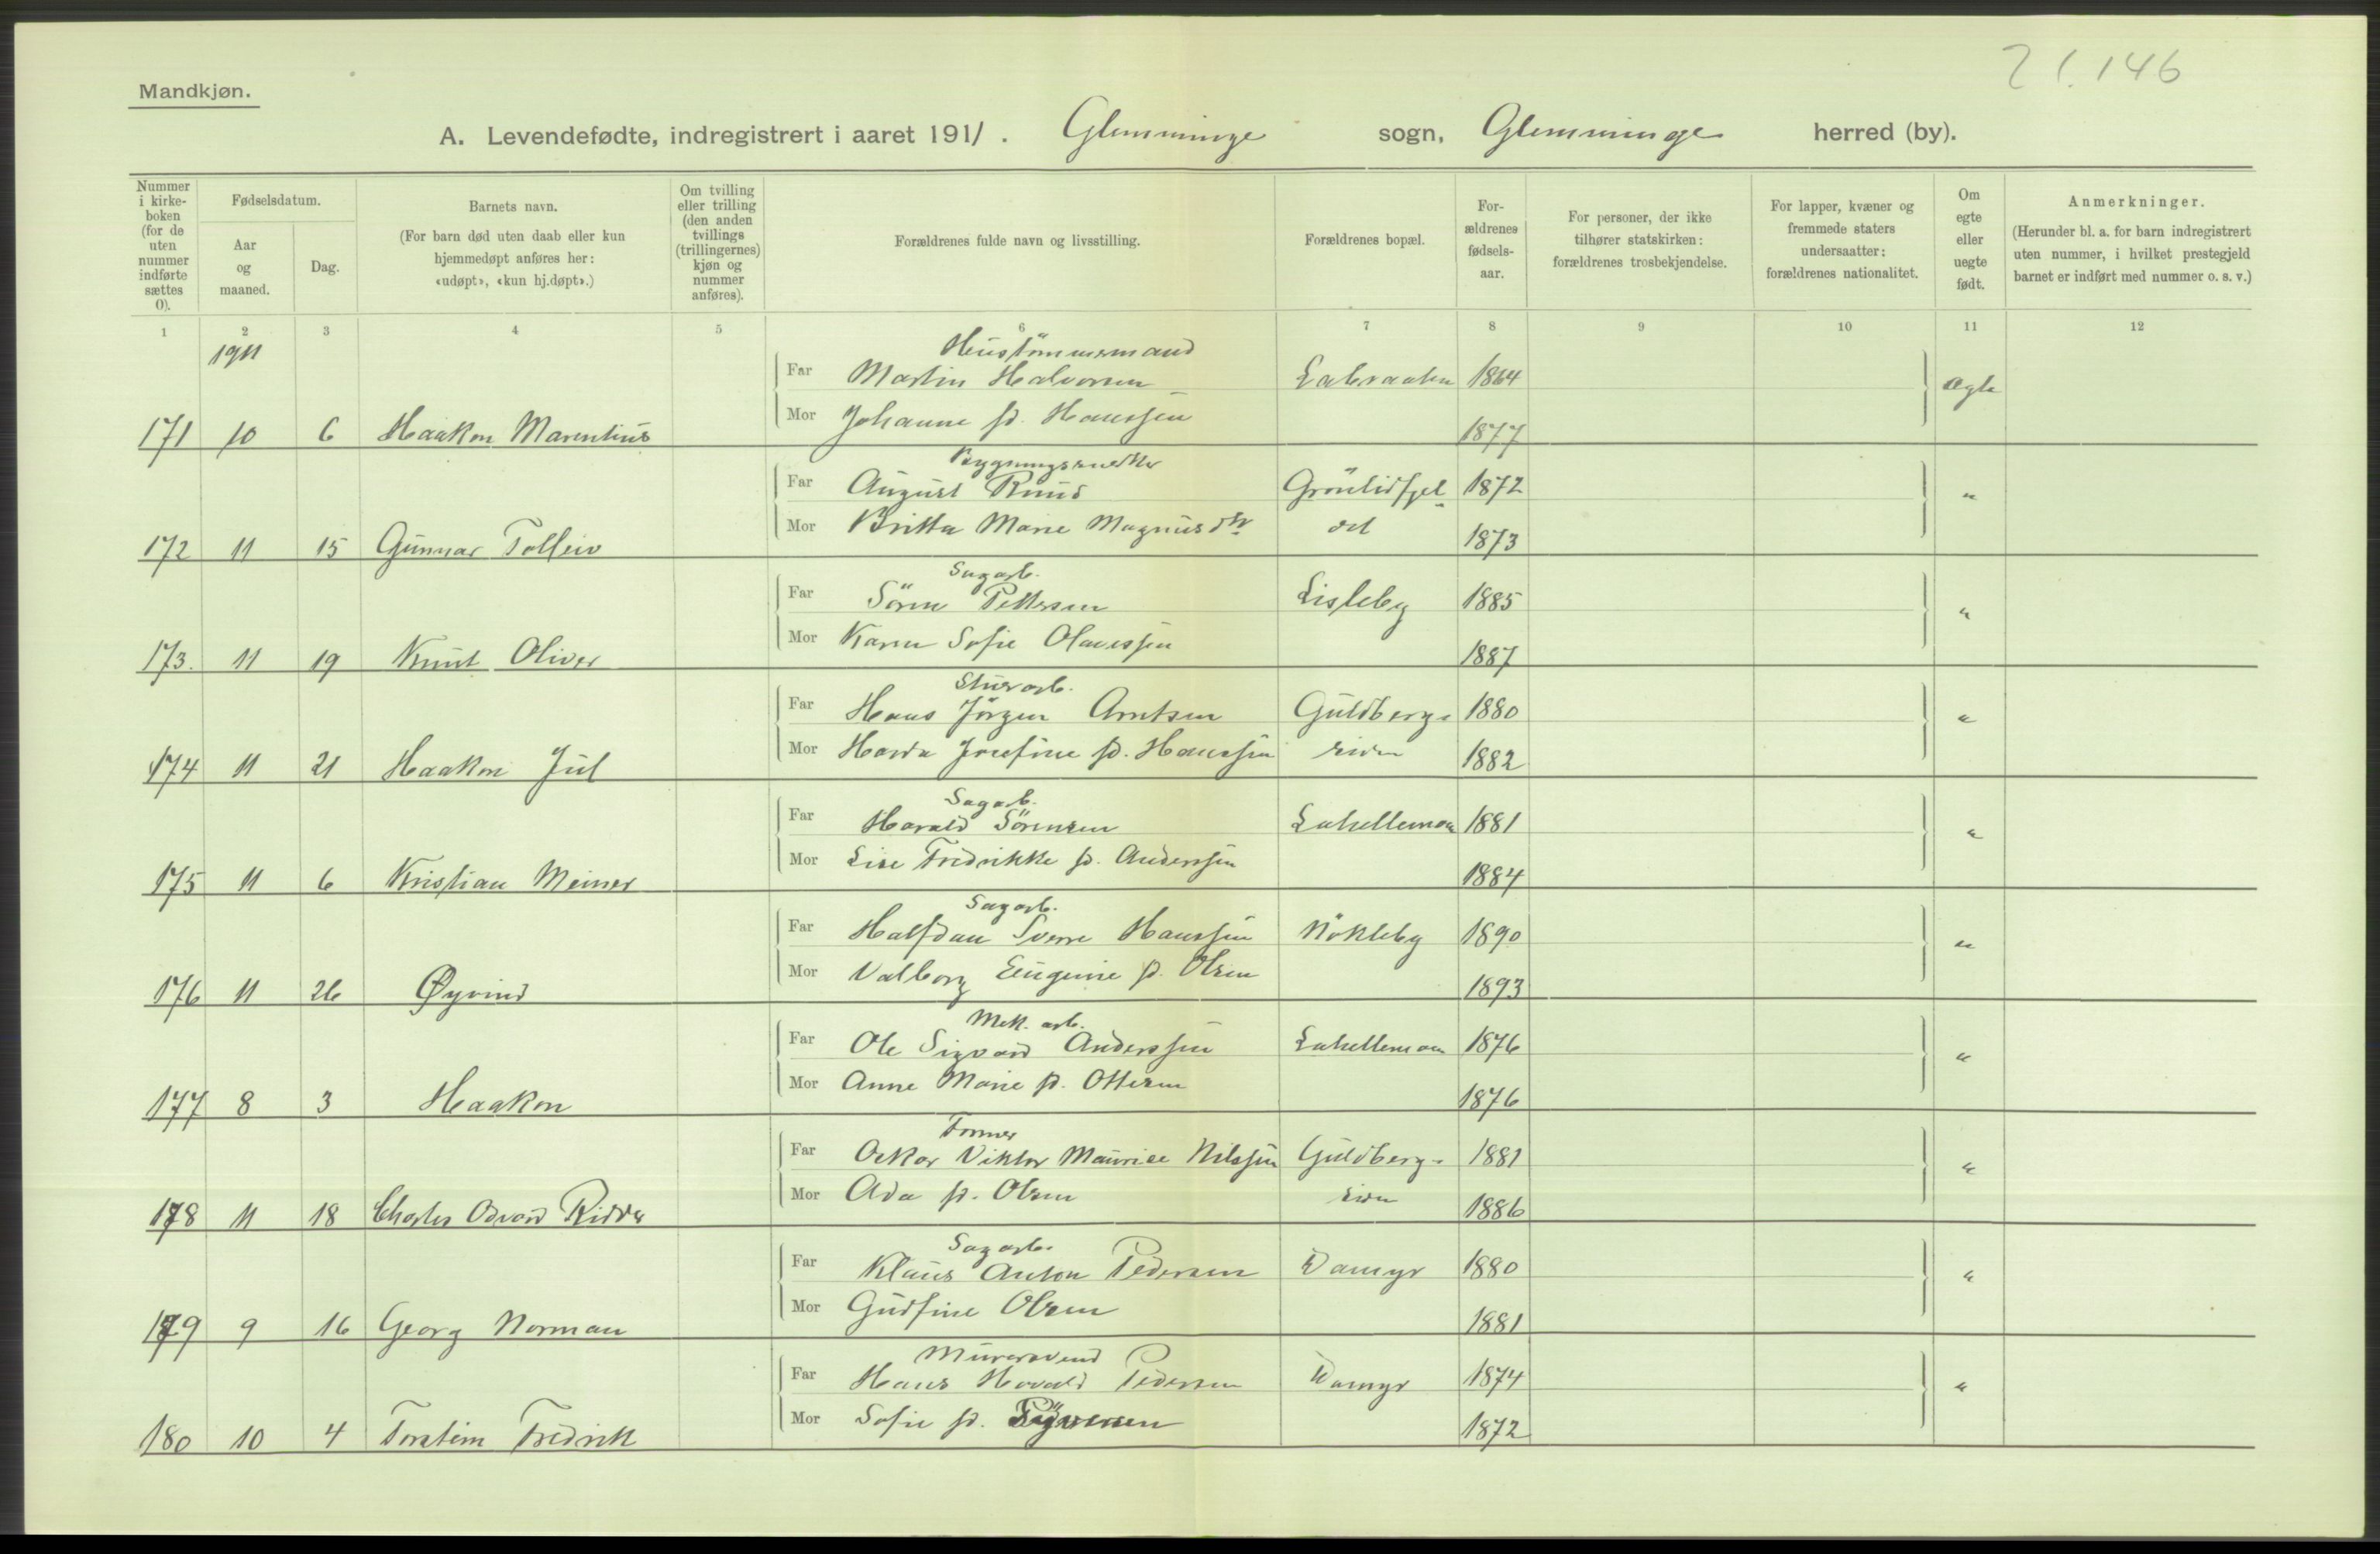 21.146
Mandkjøn.
A. Levendefødte, indregistrert i aaret 1911. Glemminge sogn, Glemminge herred (by).
Nummer i kirkeboken (for de uten nummer indførte sættes 0).
Fødselsdatum.
Aar og maaned.
Dag.
Barnets navn.
(For barn død uten daab eller kun hjemmedøpt anføres her: «udøpt», «kun hj.døpt».)
Om tvilling eller trilling (den anden tvillings (trillingernes) kjøn og nummer anføres).
Forældrenes fulde navn og livsstilling.
Forældrenes bopæl.
Forældrenes fødselsaar.
For personer, der ikke tilhører statskirken: forældrenes trosbekjendelse.
For lapper, kvæner og fremmede staters undersaatter: forældrenes nationalitet.
Om egte eller uegte født.
Anmerkninger.
(Herunder bl. a. for barn indregistrert uten nummer, i hvilket prestegjeld barnet er indført med nummer o. s. v.)
1 2 3 4 5 6 7 8 9 10 11 12
1911
Hustömmermand
Far Martin Halvorsen Labraaten 1864 ægte
Mor Johanne fd. Hanssen 1877
171 10 6 Haakon Marentius
Bygningssnedker
Far August Ruud Grönlidfjel- 1872 "
Mor Britta Marie Magnusdtr det 1873
172 11 15 Gunnar Tolleiv
Sagarb.
Far Sören Pettersen Lisleby 1885 "
Mor Karen Sofie Olavessen 1887
173. 11 19 Knut Oliver
Stuerarb.
Far Hans Jörgen Arntsen Guldbergs- 1880 "
Mor Harda Josefine fd. Hanssen siden 1882
174 11 21 Haakon Jul
Sagarb.
Far Harald Sörensen Lahellemoen 1881 "
Mor Lise Fredrikke fd. Anderssen 1884
175 11 6 Kristian Meiner
Sagarb.
Far Halfdan Sverre Hanssen Nökleby 1890 "
Mor Valborg Eugenie fd. Olsen 1893
176 11 26 Øyvind
Mek. arb.
Far Ole Sigvard Anderssen Lahellemoen 1876 "
Mor Anne Marie fd. Ottesen 1876
177 8 3 Haakon
Former
Far Oskar Viktor Maurice Nilssen Guldbergs- 1881 "
Mor Ada fd. Olsen siden 1886
178 11 18 Charles Edvard Ridder
Sagarb.
Far Klaus Anton Pedersen Damyr 1880 "
Mor Gudfine Olsen 1881
179 9 16 Georg Norman
Murersvend
Far Hans Hovald Pedersen Damyr 1874 "
Mor Sofie fd. 1872
180 10 4 Torstein Fredrik